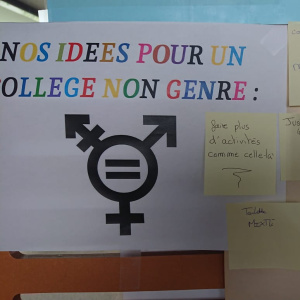 NOS IDEES POUR UN
COLLEGE NON GENRE :
faire plus
d'activités
comme celle là
Toilette
MIXTE